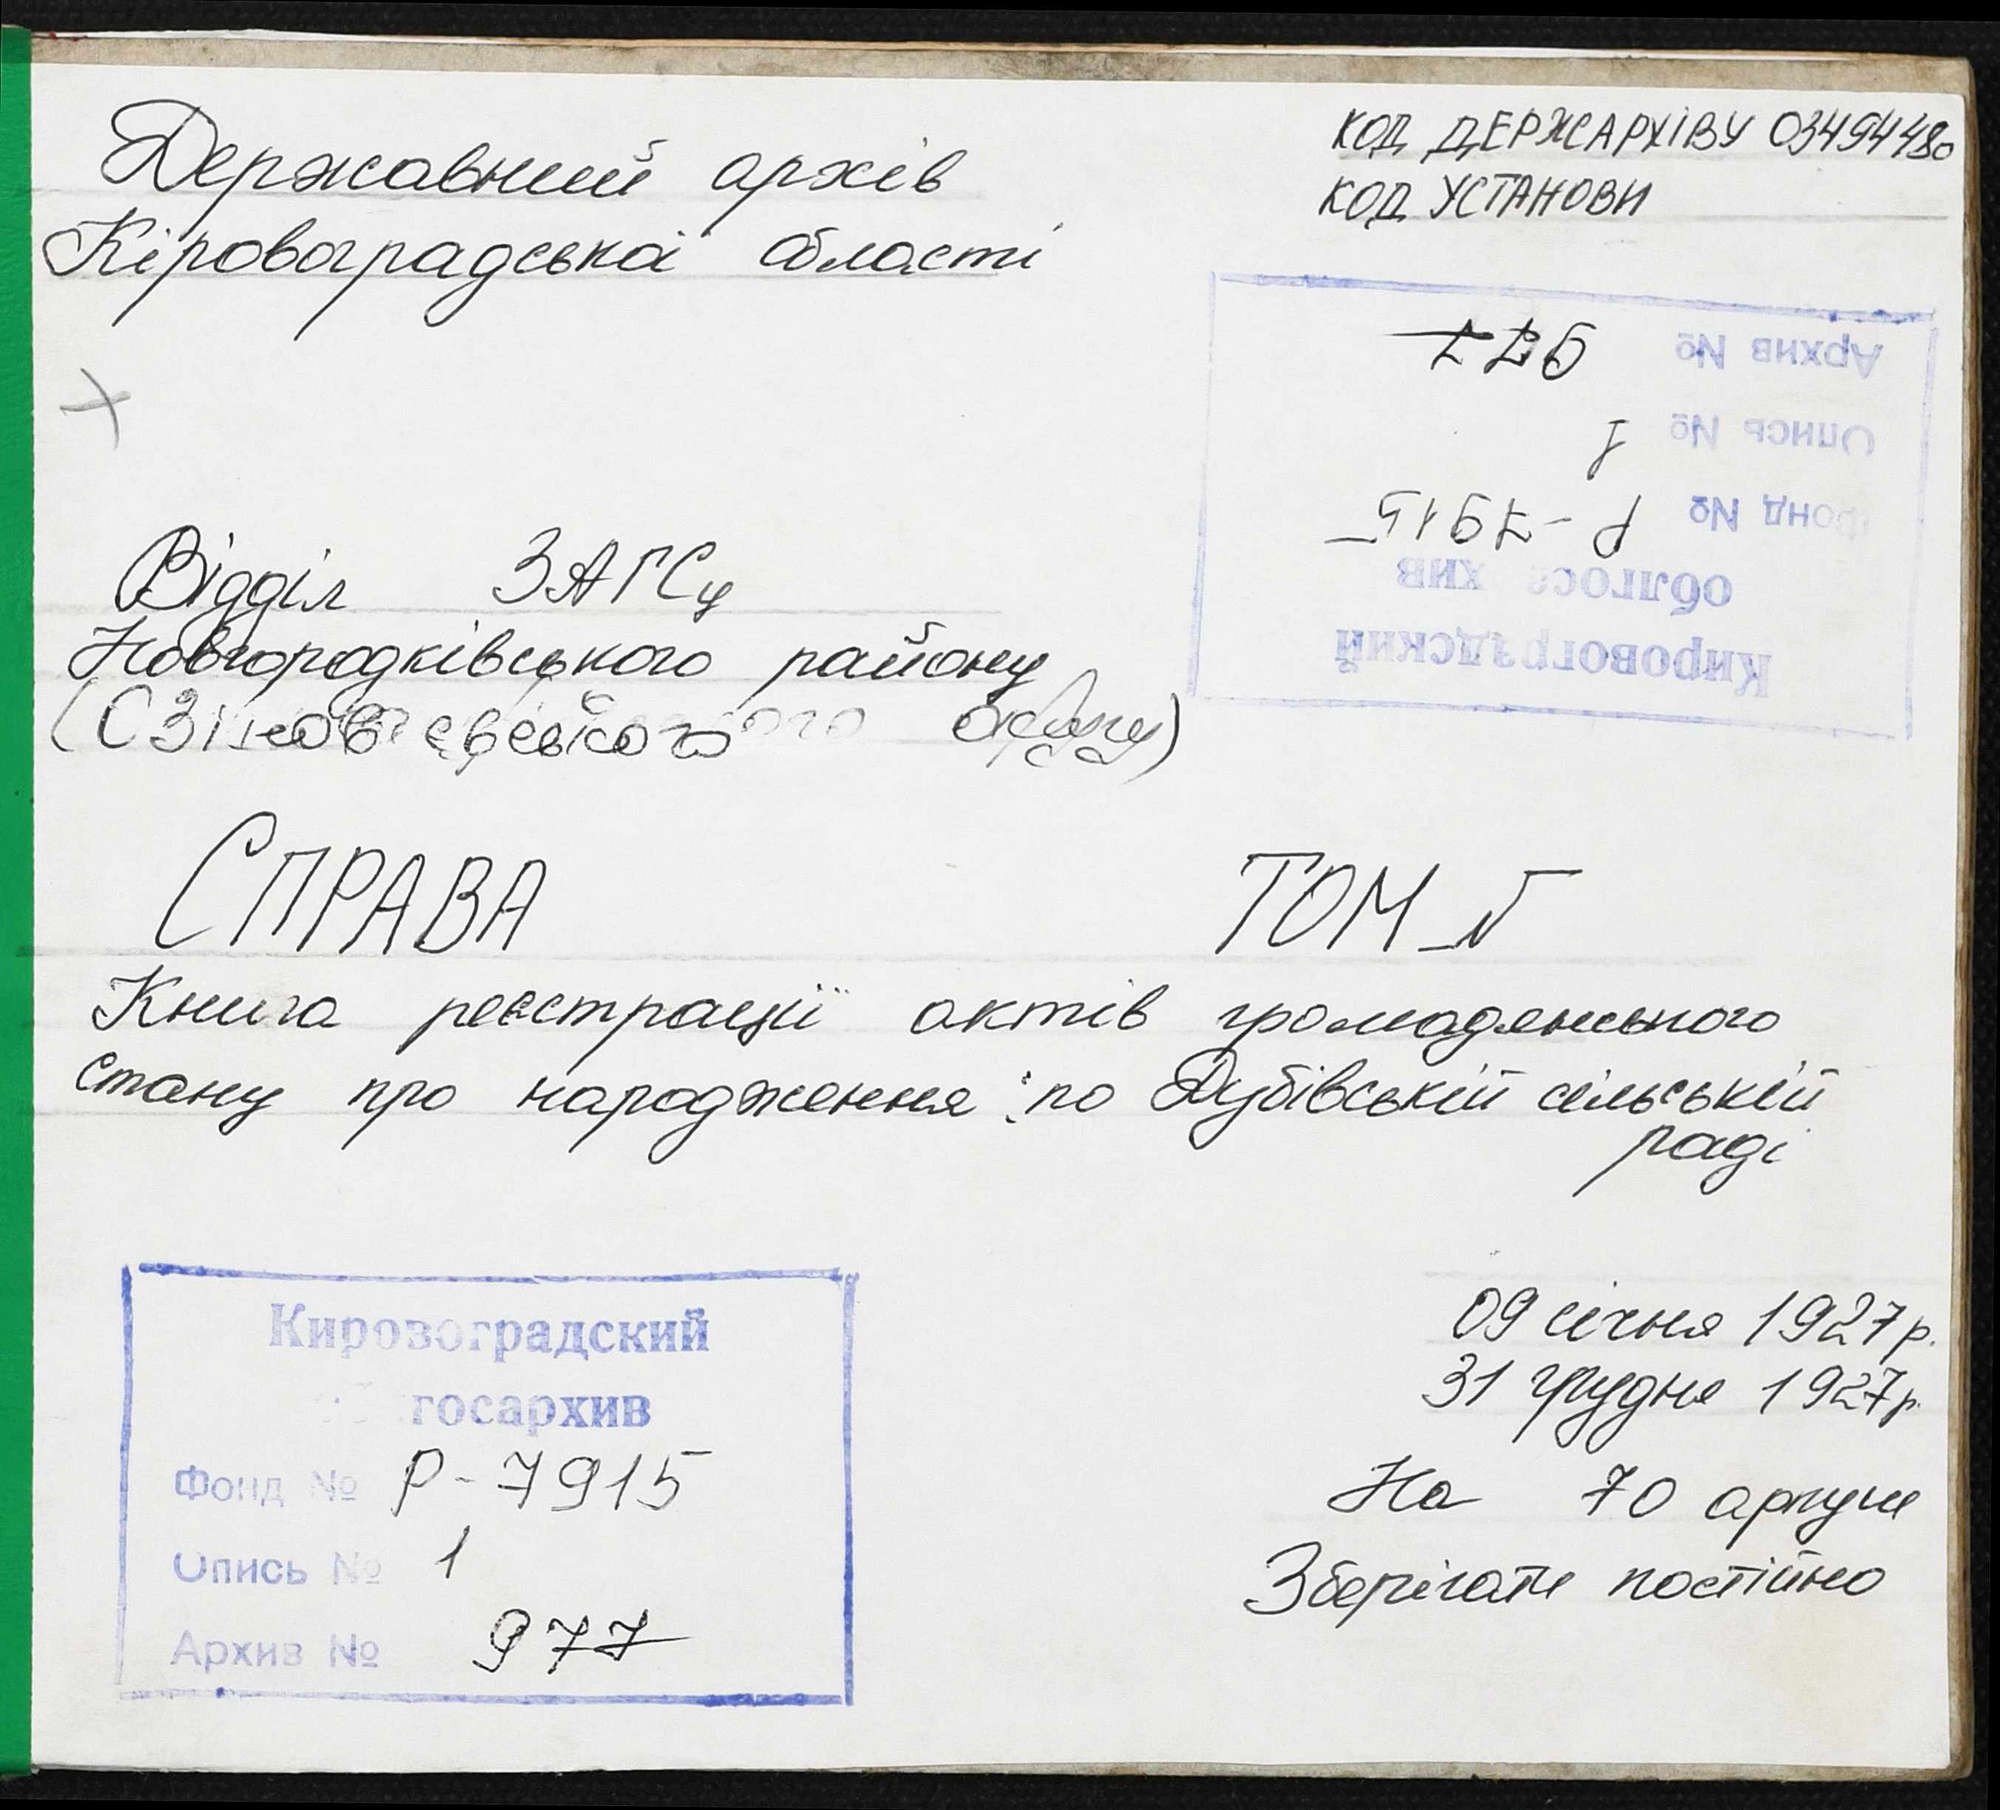 Державний архів
Кіровоградської області
КОД ДЕРЖАРХІВУ 03494480
КОД УСТАНОВИ
Кировоградский
облгос хив
Фонд № Р-7915
Опись № 1
Архив № 977
Відділ ЗАГСу
Новгородківського району
(Зінов'євського округу)
СПРАВА ТОМ
Книга реєстрації актів громадянського
стану про народження: по Дубівській сільській
раді
09 січня 1927 р.
31 грудня 1927 р.
На 70 аркуше
Зберігати постійно
Кировоградский
госархив
Фонд № Р-7915
Опись № 1
Архив № 977